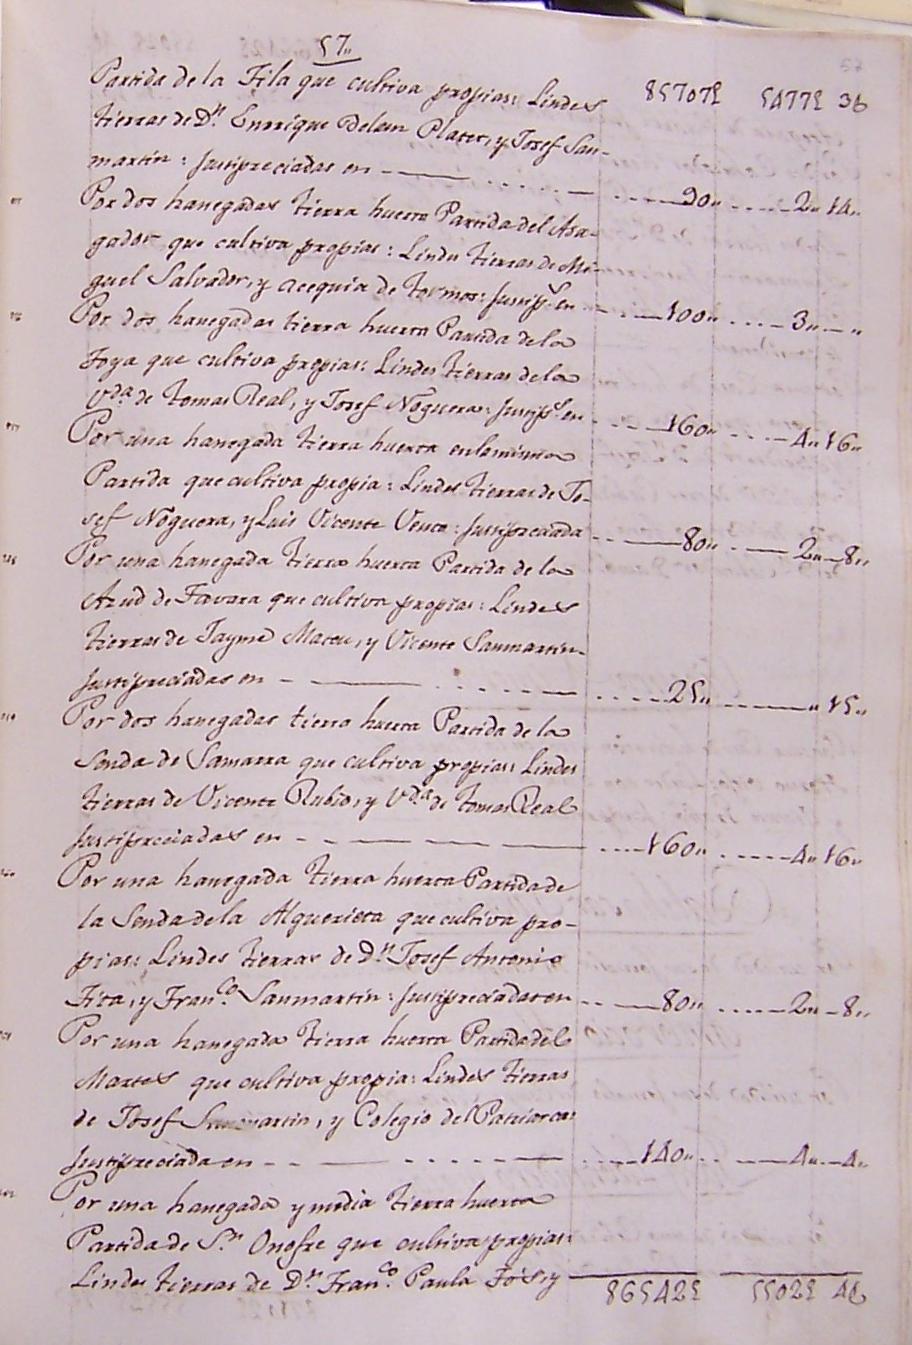 57..
Partida de la Fila que cultiva propias: Lindes 857072 54772 36
tierras de Dn. Enrrique Plater, y Josef San-
martin: Justipreciadas en 90.. 2.. 14..
Por dos hanegadas tierra huerta Partida del Asa-
gador que cultiva propias: Lindes tierras de Mi-
guel Salvador, y acequia de tormos: Justip.s en 100.. 3.. ..
Por dos hanegadas tierra huerta Partida de la
Foya que cultiva propias: Lindes tierras de la
Vda. de tomas Real, y Josef Noguera: Justip.s en 160.. 4.. 16..
Por una hanegada tierra huerta en la misma
Partida que cultiva propia: Lindes tierras de Jo-
sef Noguera, y Luis Vicente Vento: Justipreciada 80.. 2.. 8..
Por una hanegada tierra huerta Partida de la
Azud de Favara que cultiva propias: Lindes
tierras de Jayme Mateu, y Vicente Sanmartin
Justipreciadas en 25.. .. 15..
Por dos hanegadas tierra huerta Partida de la
Senda de Samarra que cultiva propias: Lindes
tierras de Vicente Rubio, y Vda. de tomas Real
Justipreciadas en 160.. 4.. 16..
Por una hanegada tierra huerta Partida de
la Senda de la Alguerieta que cultiva pro-
pias: Lindes tierras de Dn. Josef Antonio
Fita, y Franco. Sanmartin: Justipreciadas en 80.. 2.. 8..
Por una hanegada tierra huerta Partida del
Martes que cultiva propia: Lindes tierras
de Josef Sanmartin, y Colegio del Patriarca:
Justipreciada en 140.. 4.. 4..
Por una hanegada y media tierra huerta
Partida de Sn. Onofre que cultiva propias:
Lindes tierras de Dn. Franco. Paula Fos, y 865422 55022 46